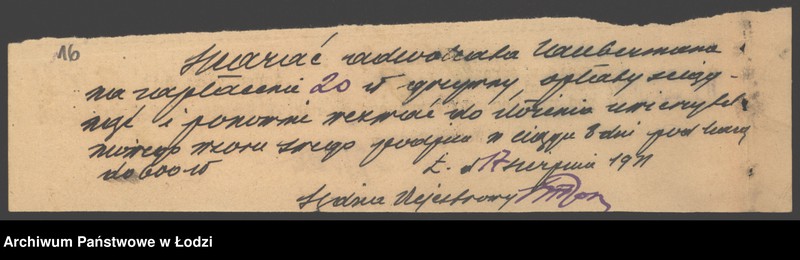 16
Skazać adwokata Laubermana
na zapłacenie 20 zł grzywny, opłaty ściąg-
nąć i ponownie wezwać do złożenia uwierzytel-
nionego wzoru swego podpisu w ciągu 8 dni pod karą
do 600 zł
Ł. d 17 sierpnia 19
Sędzia Rejestrowy
Archiwum Państwowe w Łodzi